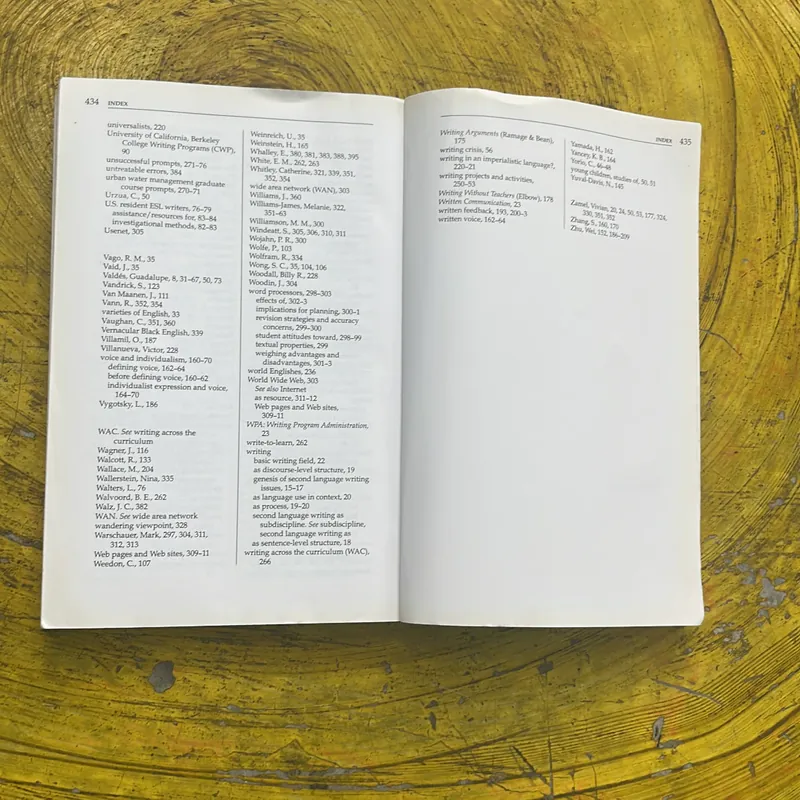 434 INDEX
universalists, 220
University of California, Berkeley
College Writing Programs (CWP),
90
unsuccessful prompts, 271–76
untreatable errors, 384
urban water management graduate
course prompts, 270–71
Urzua, C., 50
U.S. resident ESL writers, 76–79
assistance/resources for, 83–84
investigational methods, 82–83
Usenet, 305
Vago, R. M., 35
Vaid, J., 35
Valdés, Guadalupe, 8, 31–67, 50, 73
Vandrick, S., 123
Van Maanen, J., 111
Vann, R., 352, 354
varieties of English, 33
Vaughan, C., 351, 360
Vernacular Black English, 339
Villamil, O., 187
Villanueva, Victor, 228
voice and individualism, 160–70
defining voice, 162–64
before defining voice, 160–62
individualist expression and voice,
164–70
Vygotsky, L., 186
WAC. See writing across the
curriculum
Wagner, J., 116
Walcott, R., 133
Wallace, M., 204
Wallerstein, Nina, 335
Walters, L., 76
Walvoord, B. E., 262
Walz, J. C., 382
WAN. See wide area network
wandering viewpoint, 328
Warschauer, Mark, 297, 304, 311,
312, 313
Web pages and Web sites, 309–11
Weedon, C., 107
Weinreich, U., 35
Weinstein, H., 165
Whalley, E., 380, 381, 383, 388, 395
White, E. M., 262, 263
Whitley, Catherine, 321, 339, 351,
352, 354
wide area network (WAN), 303
Williams, J., 360
Williams-James, Melanie, 322,
351–63
Williamson, M. M., 300
Windeatt, S., 305, 306, 310, 311
Wojahn, P. R., 300
Wolfe, P., 103
Wolfram, R., 334
Wong, S. C., 35, 104, 106
Woodall, Billy R., 228
Woodin, J., 304
word processors, 298–303
effects of, 302–3
implications for planning, 300–1
revision strategies and accuracy
concerns, 299–300
student attitudes toward, 298–99
textual properties, 299
weighing advantages and
disadvantages, 301–3
world Englishes, 236
World Wide Web, 303
See also Internet
as resource, 311–12
Web pages and Web sites,
309–11
WPA: Writing Program Administration,
23
write-to-learn, 262
writing
basic writing field, 22
as discourse-level structure, 19
genesis of second language writing
issues, 15–17
as language use in context, 20
as process, 19–20
second language writing as
subdiscipline. See subdiscipline,
second language writing as
as sentence-level structure, 18
writing across the curriculum (WAC),
266
INDEX 435
Writing Arguments (Ramage & Bean),
175
writing crisis, 56
writing in an imperialistic language?,
220–21
writing projects and activities,
250–53
Writing Without Teachers (Elbow), 178
Written Communication, 23
written feedback, 193, 200–3
written voice, 162–64
Yamada, H., 162
Yancey, K. B., 164
Yorio, C., 46–48
young children, studies of, 50, 51
Yuval-Davis, N., 145
Zamel, Vivian, 20, 24, 50, 51, 177, 324,
330, 351, 352
Zhang, S., 160, 170
Zhu, Wei, 152, 186–209